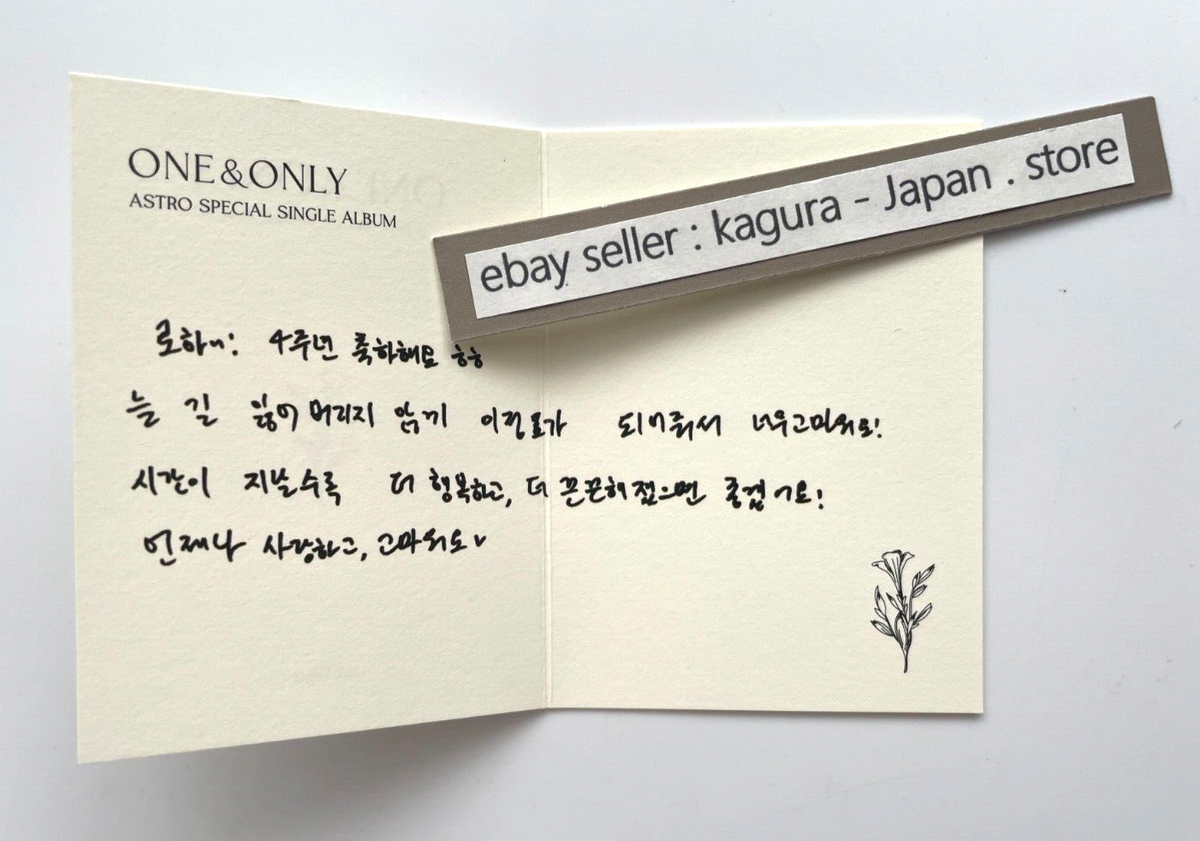 ONE&ONLY
ASTRO SPECIAL SINGLE ALBUM
ebay seller : kagura - Japan . store
로하~: 4주년 축하해요 ㅎㅎ
늘 길 잃어버리지 않게 이정표가 되어줘서 너무 고마워요!
시간이 지날수록 더 행복하고, 더 끈끈해졌으면 좋겠어요!
언제나 사랑하고, 고마워요♥